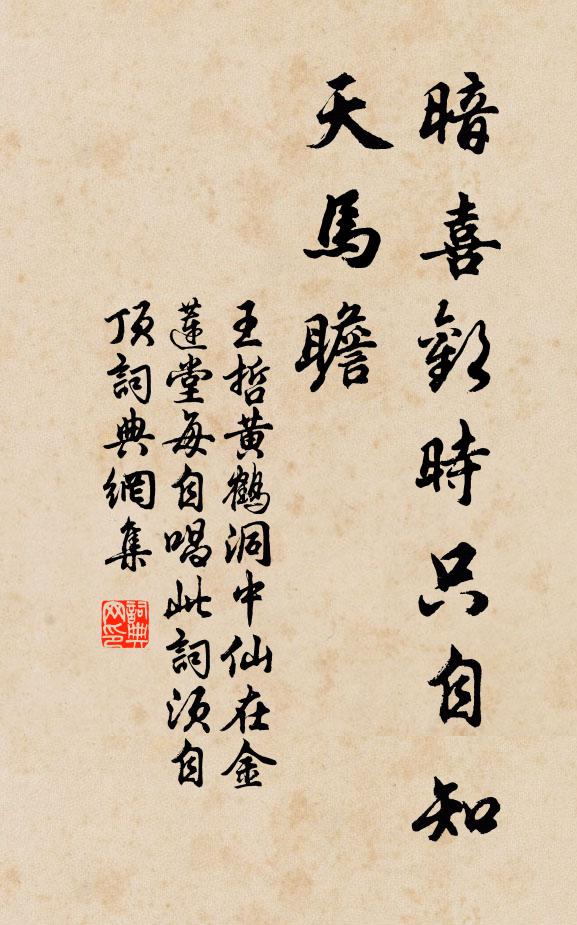 暗喜歡時只自知
天馬瞻
王哲黃鶴洞中仙在金
蓮堂每自唱此詞須自
頂詞典網集
詞典网印